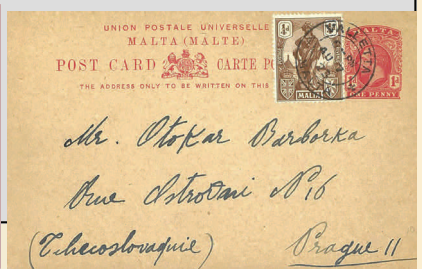 UNION POSTALE UNIVERSELLE
MALTA (MALTE)
POST CARD CARTE PO
THE ADDRESS ONLY TO BE WRITTEN ON THIS
MALTA
VALLETTA
MALTA
PENNY
Mr. Otokar Barborka
Rue Ostrovní No 16
(Tchecoslovaquie)
Prague II